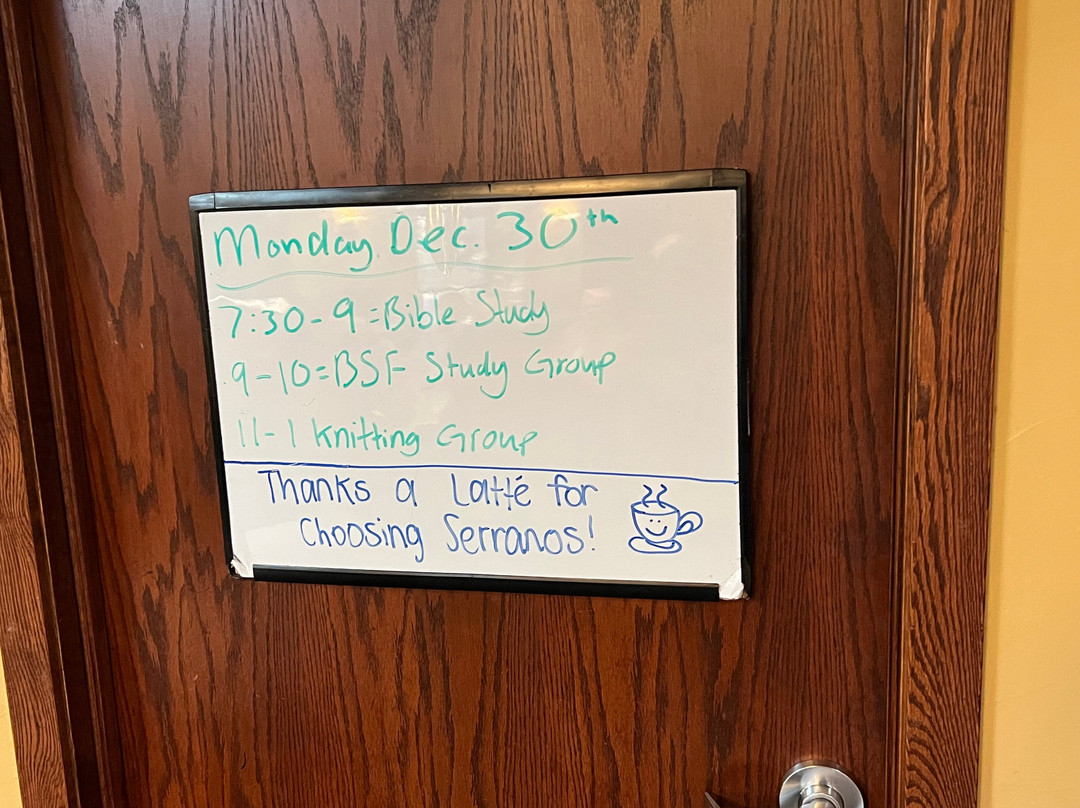 Monday Dec. 30th
7:30-9=Bible Study
9-10=BSF Study Group
11-1 Knitting Group
Thanks a Latté for
Choosing Serranos!